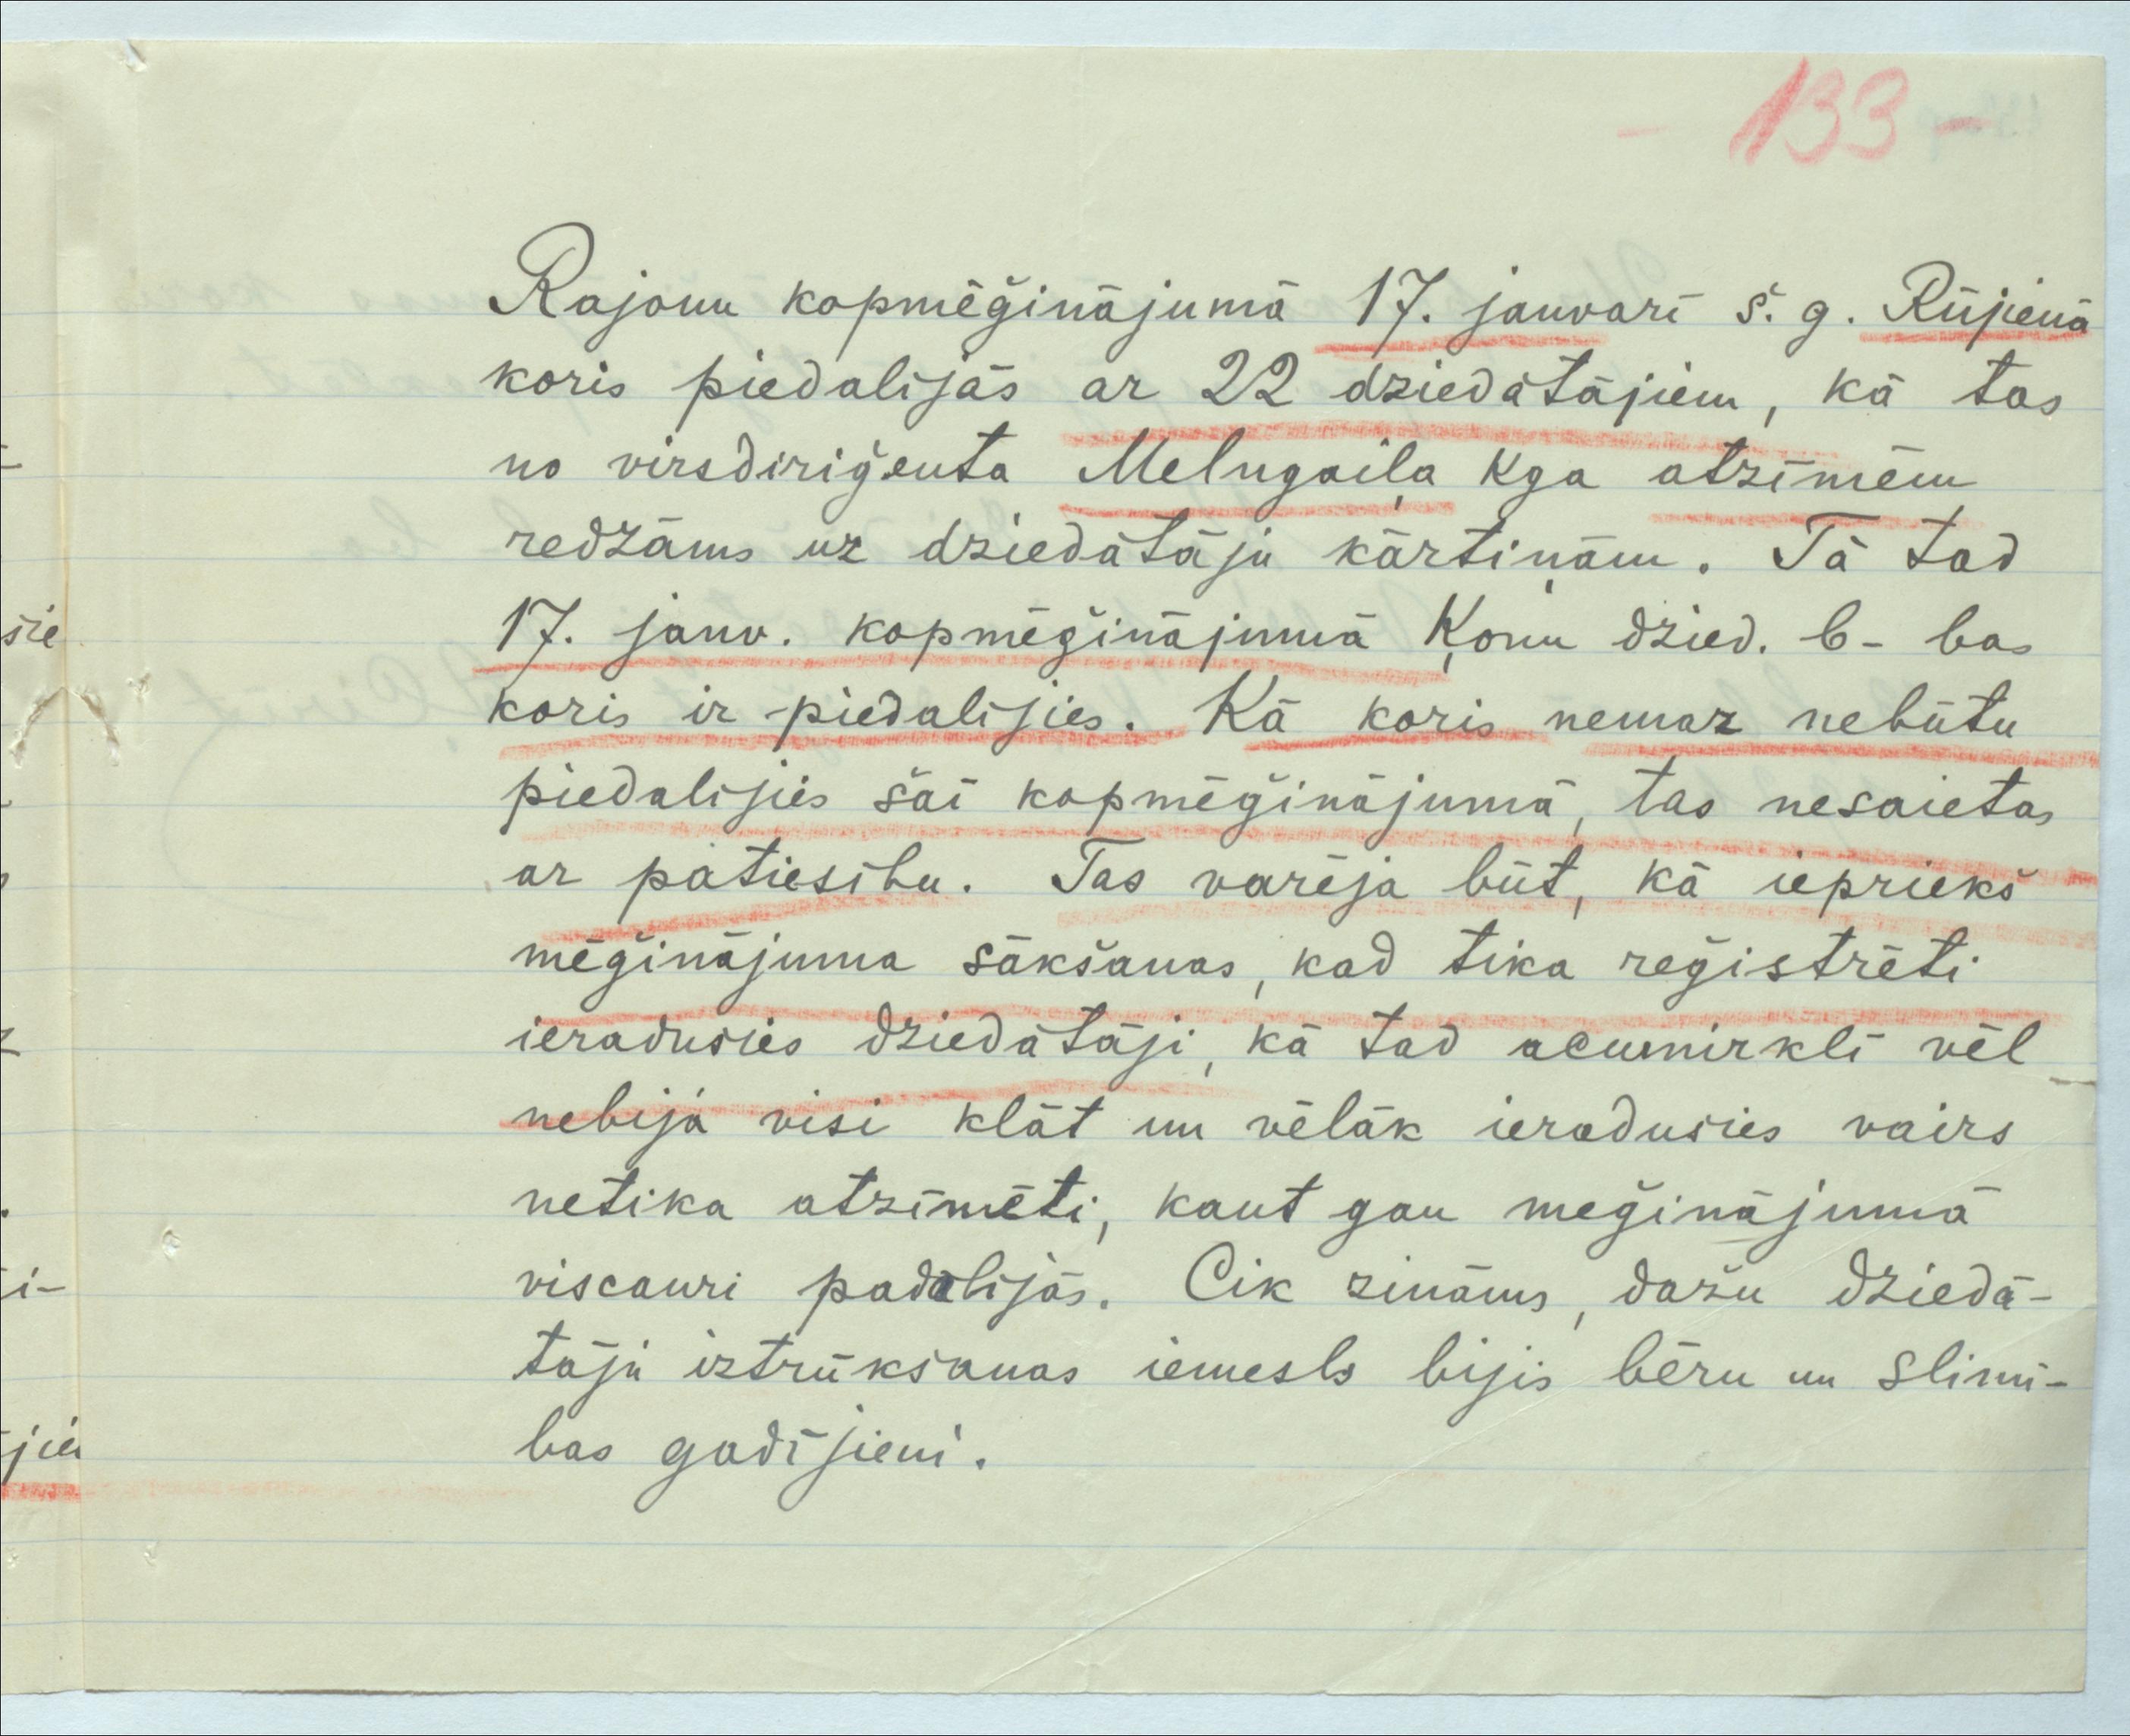 - 133 -
Rajonu kopmēģinājumā 17. janvarī š. g. Rūjienā
koris piedalijās ar 22 dziedātājiem, kā tas
no virsdiriģenta Melngaiļa kga atzīmēm
redzāms uz dziedātāju kārtiņām. Tā tad
sie
17. janv. kopmēģinājumā Ķonu dzied. b-bas
koris ir piedalijies. Kā koris nemaz nebūtu
piedalijies šāī kopmēģinājumā, tas nesaietas
ar patiesību. Tas varēja būt, kā iepriekš
mēģinājuma sākšanas, kad tika reģistrēti
ieradusies dziedātāji, kā tad acumirklī vēl
nebija visi klāt un vēlāk ieradusies vairs
netika atzīmēti, kaut gan meģinājumā
i-
viscauri padalijās. Cik zināms, dažu dziedā-
tāju iztrūkšanas iemesls bijis bēru un slimī-
jie
bas gadījieni.